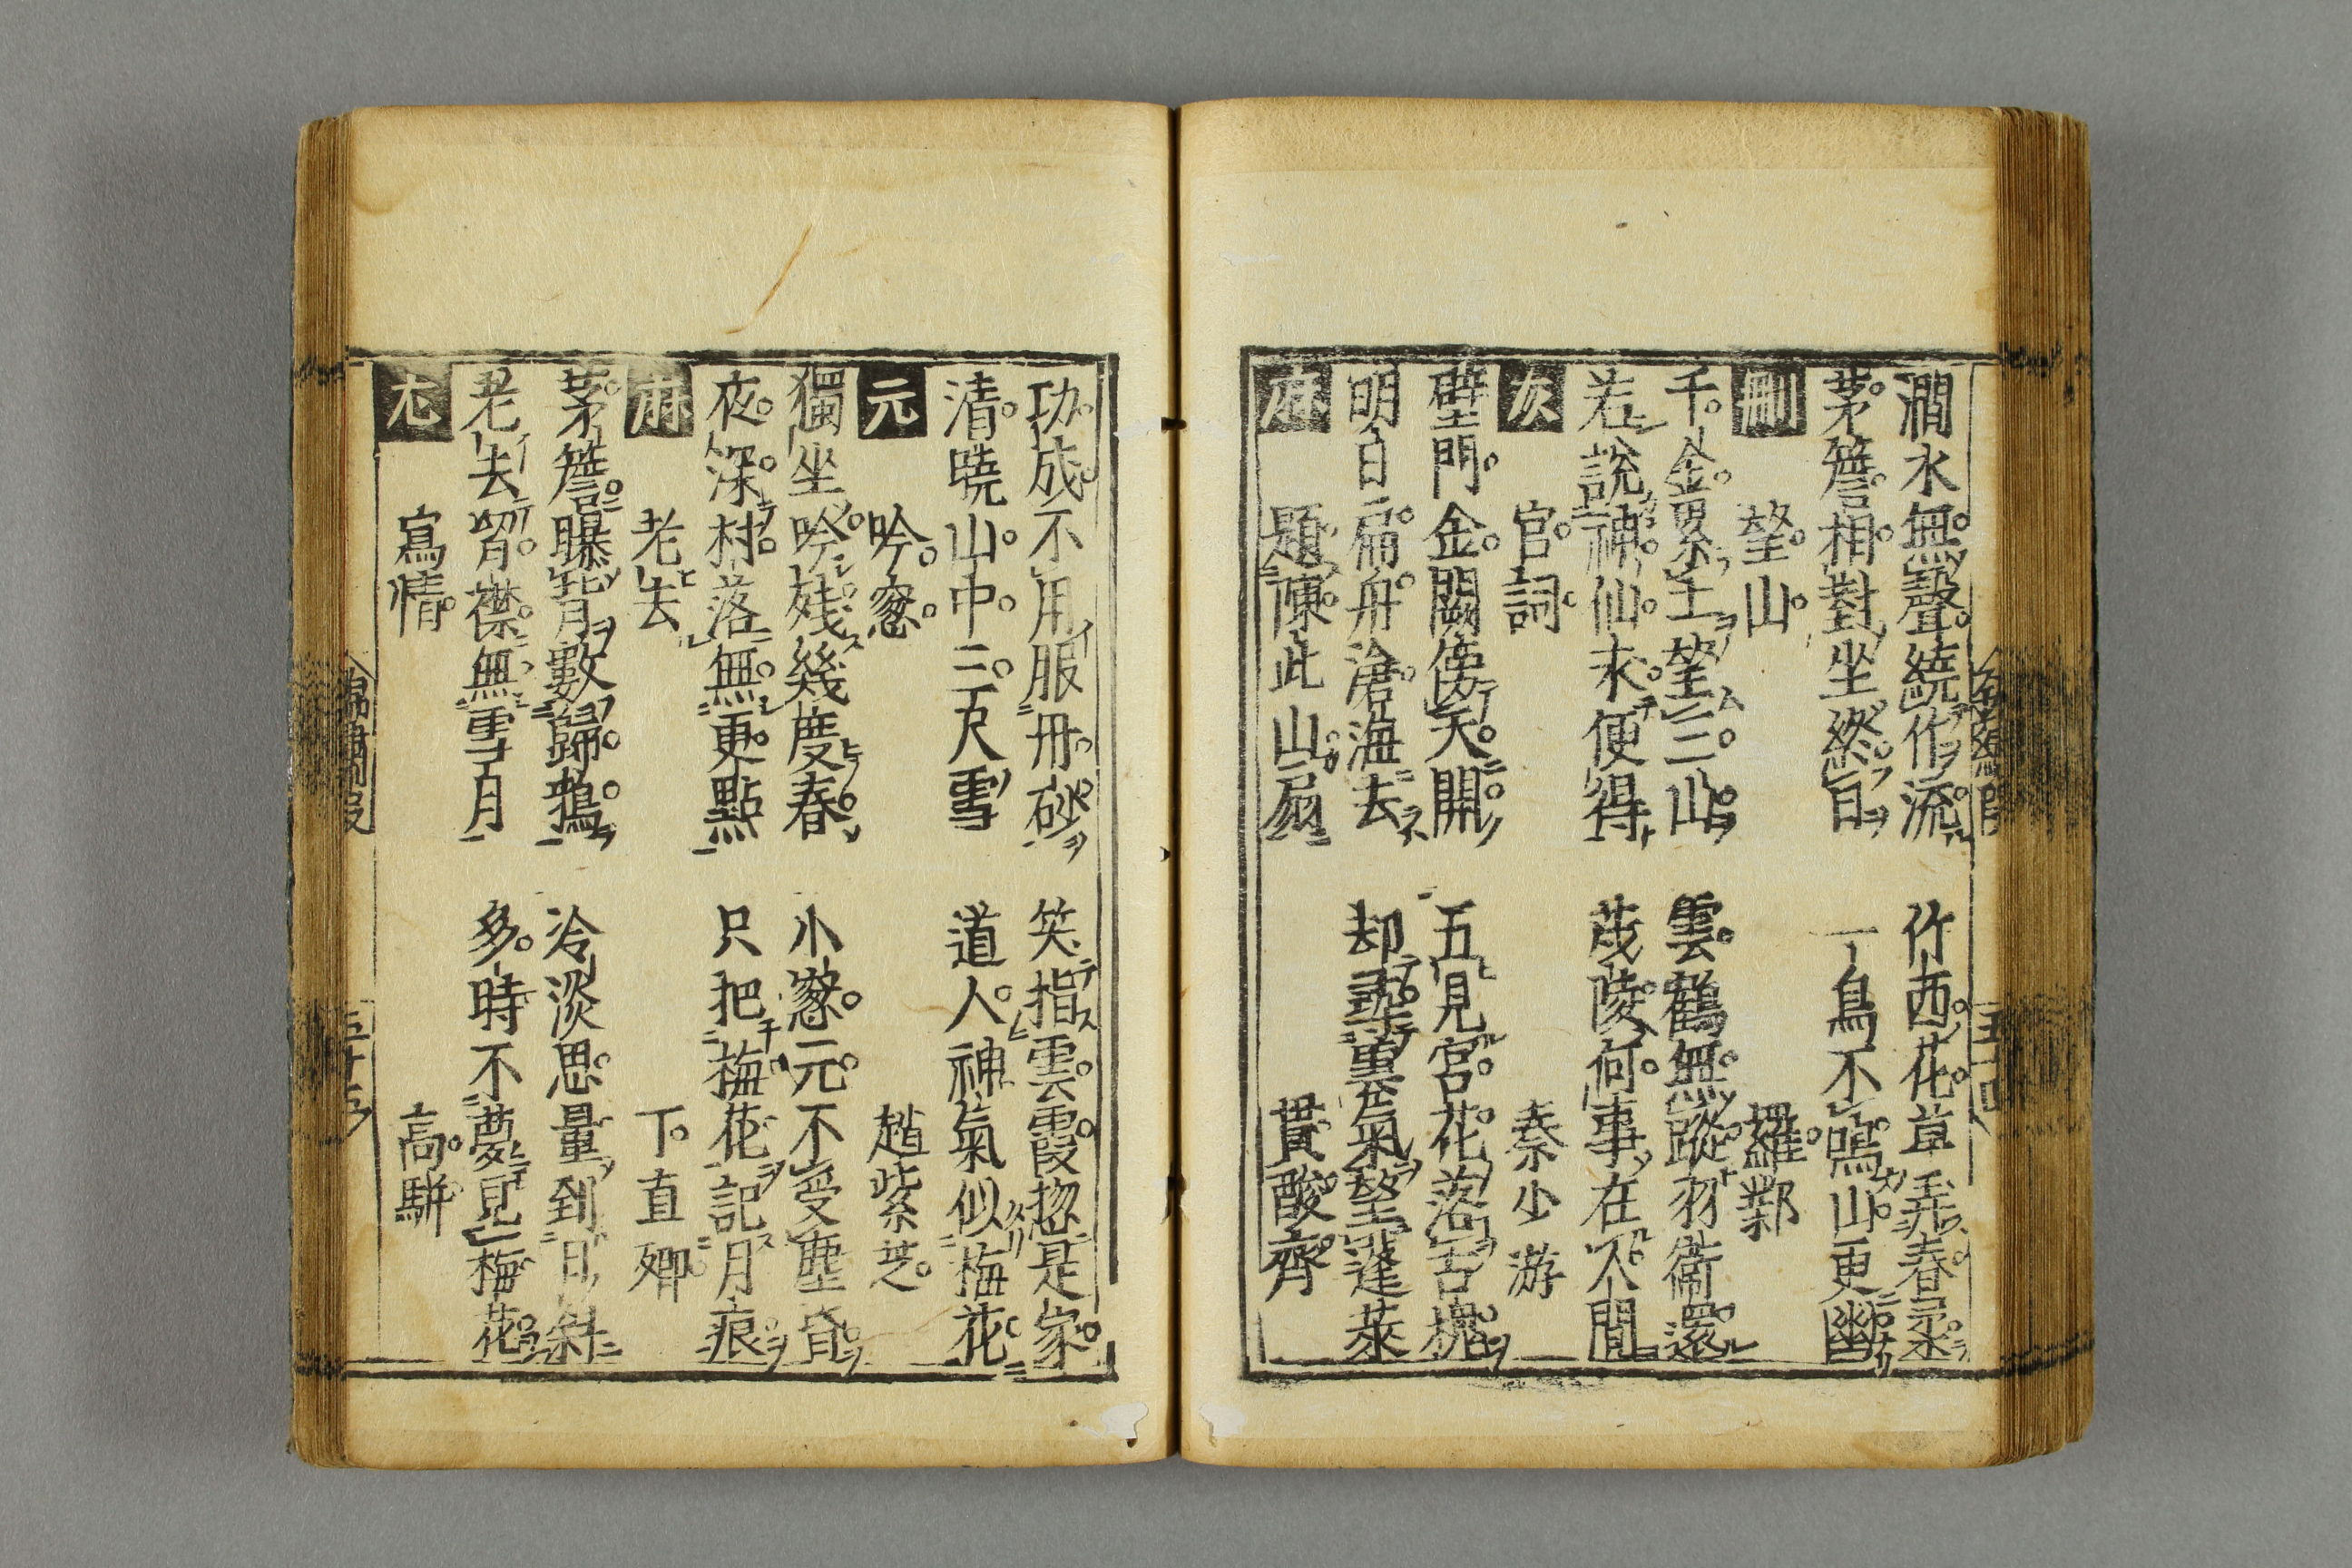 澗水無聲繞竹流 竹西花草弄春柔
茅簷相對坐終日 一鳥不鳴山更幽
刪 望山 羅鄴
千金累土望三山 雲鶴無蹤羽衛還
若說神仙求便得 茂陵何事在人間
灰 官詞 秦少游
壁門金闕倚天開 五見宮花落古槐
明日扁舟滄海去 却尋雲氣望蓬萊
麻 題陳此山扇 貫酸齊
功成不用服丹砂 笑指雲霞惣是家
清曉山中三尺雪 道人神氣似梅花
元 吟窓 趙紫芝
獨坐吟殘幾度春 小窓元不受塵昏
夜深村落無更點 只把梅花記月痕
麻 老去 下直卿
茅簷曝背數歸鴉 冷淡思量到日斜
老去胷襟無雪月 多時不夢見梅花
尤 寫情 高駢
五十五